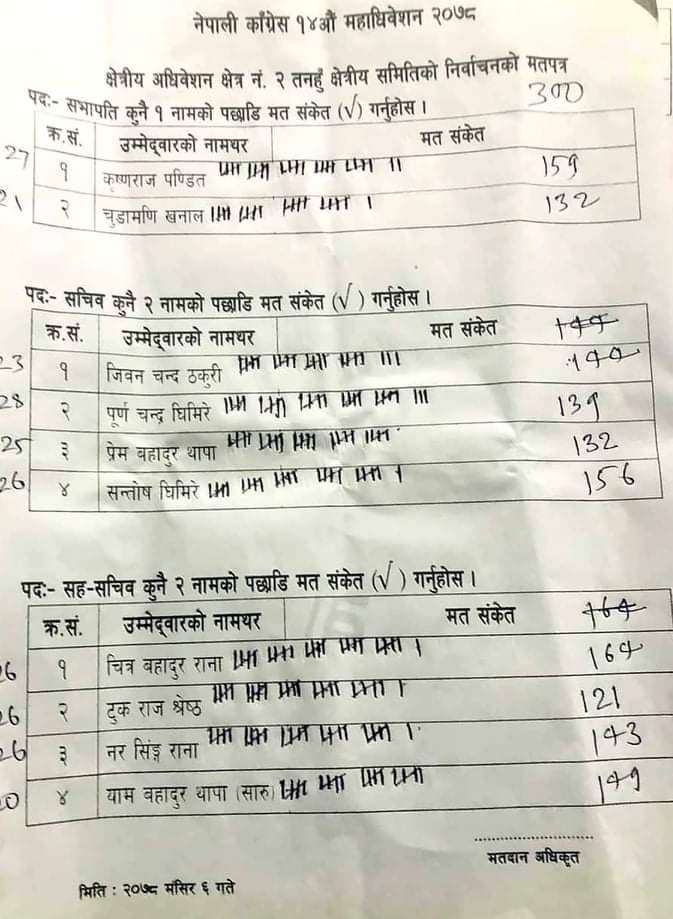 नेपाली काँग्रेस १४औं महाधिवेशन २०७८
क्षेत्रीय अधिवेशन क्षेत्र नं. २ तनहुँ क्षेत्रीय समितिको निर्वाचनको मतपत्र
300
पदः- सभापति कुनै १ नामको पछाडि मत संकेत (√) गर्नुहोस ।
क्र.सं. उम्मेद्वारको नामथर मत संकेत
27 १ कृष्णराज पण्डित 159
21 २ चुडामणि खनाल 132
पदः- सचिव कुनै २ नामको पछाडि मत संकेत (√) गर्नुहोस ।
क्र.सं. उम्मेद्वारको नामथर मत संकेत
23 १ जिवन चन्द ठकुरी
28 २ पूर्ण चन्द्र घिमिरे 139
25 ३ प्रेम बहादुर थापा 132
26 ४ सन्तोष घिमिरे 156
पदः- सह-सचिव कुनै २ नामको पछाडि मत संकेत (√) गर्नुहोस ।
क्र.सं. उम्मेद्वारको नामथर मत संकेत
26 १ चित्र बहादुर राना
26 २ टुक राज श्रेष्ठ 121
26 ३ नर सिङ्ग राना 143
20 ४ याम बहादुर थापा (सारु) 149
मतदान अधिकृत
मिति : २०७८ मंसिर ६ गते